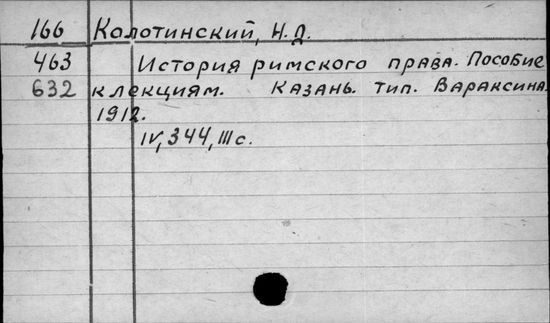 166 Колотинский, Н.Д.
463 История римского права. Пособие
632 к лекциям. Казань. тип. Вараксина.
1912.
IV, 344, III с.